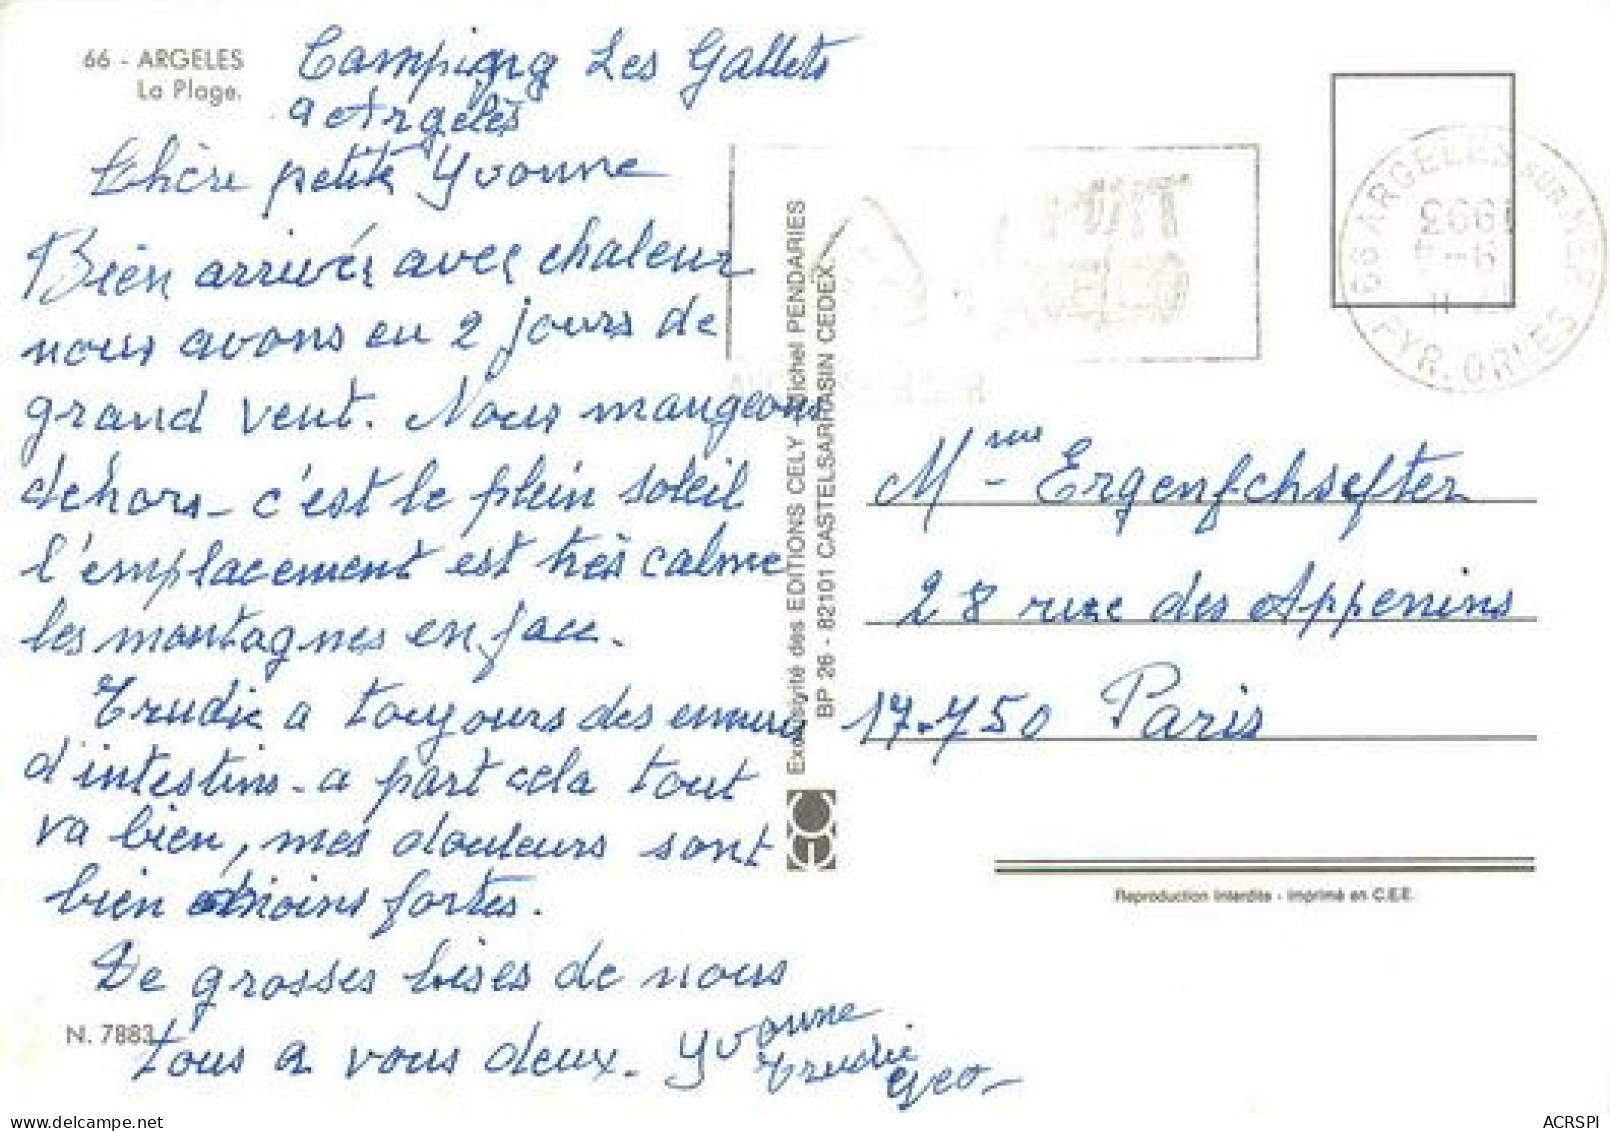 66 - ARGELES
La Plage.
Campigng Les Gallets
a Argelès
Chère petite Yvonne
Bien arrivés avec chaleur
nous avons eu 2 jours de
grand vent. Nous mangeons
dehors - c'est le plein soleil
l'emplacement est très calme
les montagnes en face.
Trudie a toujours des ennuis
d'intestins - a part cela tout
va bien, mes douleurs sont
bien moins fortes.
De grosses bises de nous
tous a vous deux. Yvonne
Trudie
Geo
N. 7883
Exclusivité des EDITIONS CELY - Michel PENDARIES
BP 26 - 82101 CASTELSARRASIN CEDEX.
66 ARGELES SUR MER
1993
PYR. ORLES
Mme Ergenfchsefter
28 rue des Appenins
17-750 Paris
Reproduction Interdite - Imprimé en C.E.E.
ACRSPI